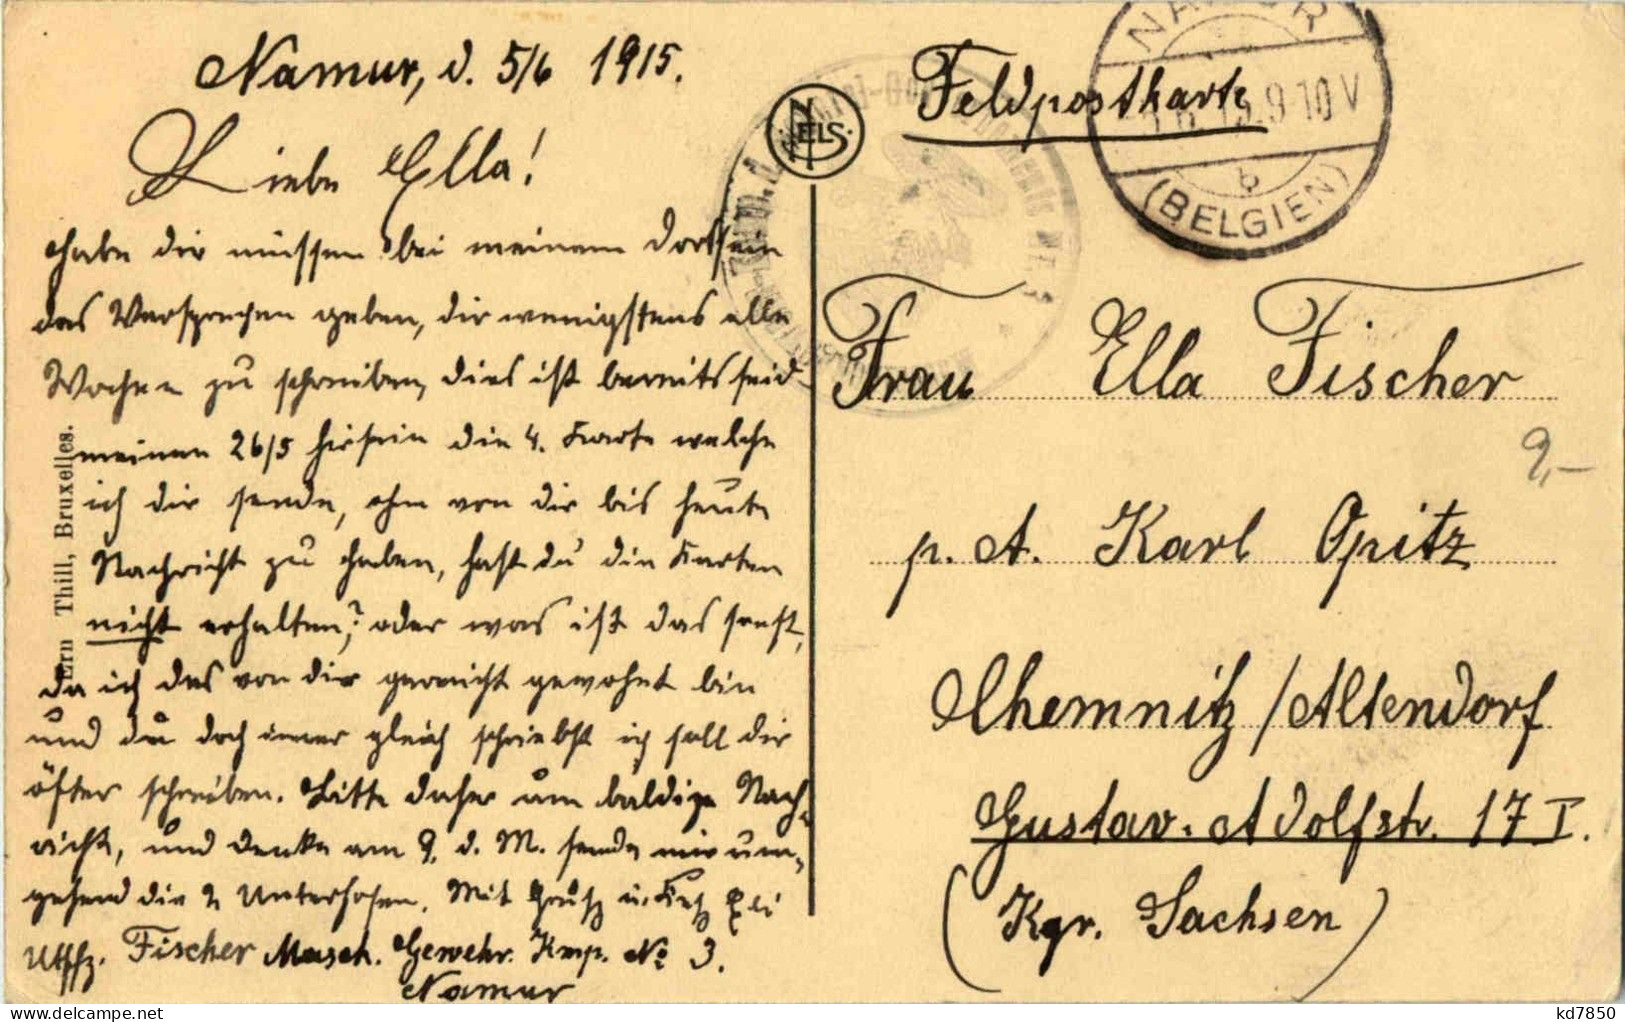 Namur, d. 5/6 1915.
Liebe Ella!
habe dir müssen bei meinem Dortsein
das Versprechen geben, dir wenigstens alle
Wochen zu schreiben, dies ist bereits seid
meinen 26/5 hiersein die 4. Karte welche
ich dir sende, ohne von dir bis heute
Nachricht zu haben, hast du die Karten
nicht erhalten? oder was ist das sonst,
da ich das von dir garnicht gewohnt bin
und du doch immer gleich schriebst ich soll dir
öfter schreiben. Bitte daher um baldige Nach-
richt, und denke am 9. d. M. sende mir um-
gehend die 2 Unterhosen. Mit Gruß u. Kuß
Utffz. Fischer Masch. Gewehr. Komp. No 3.
Namur
Ern Thill, Bruxelles.
NELS
Feldpostkarte
NAMUR
9-10 V
b
(BELGIEN)
Frau Ella Fischer
p. A. Karl Opitz
Chemnitz/Altendorf
Gustav-Adolfstr. 17 I.
(Kgr. Sachsen)
9,-
kd7850